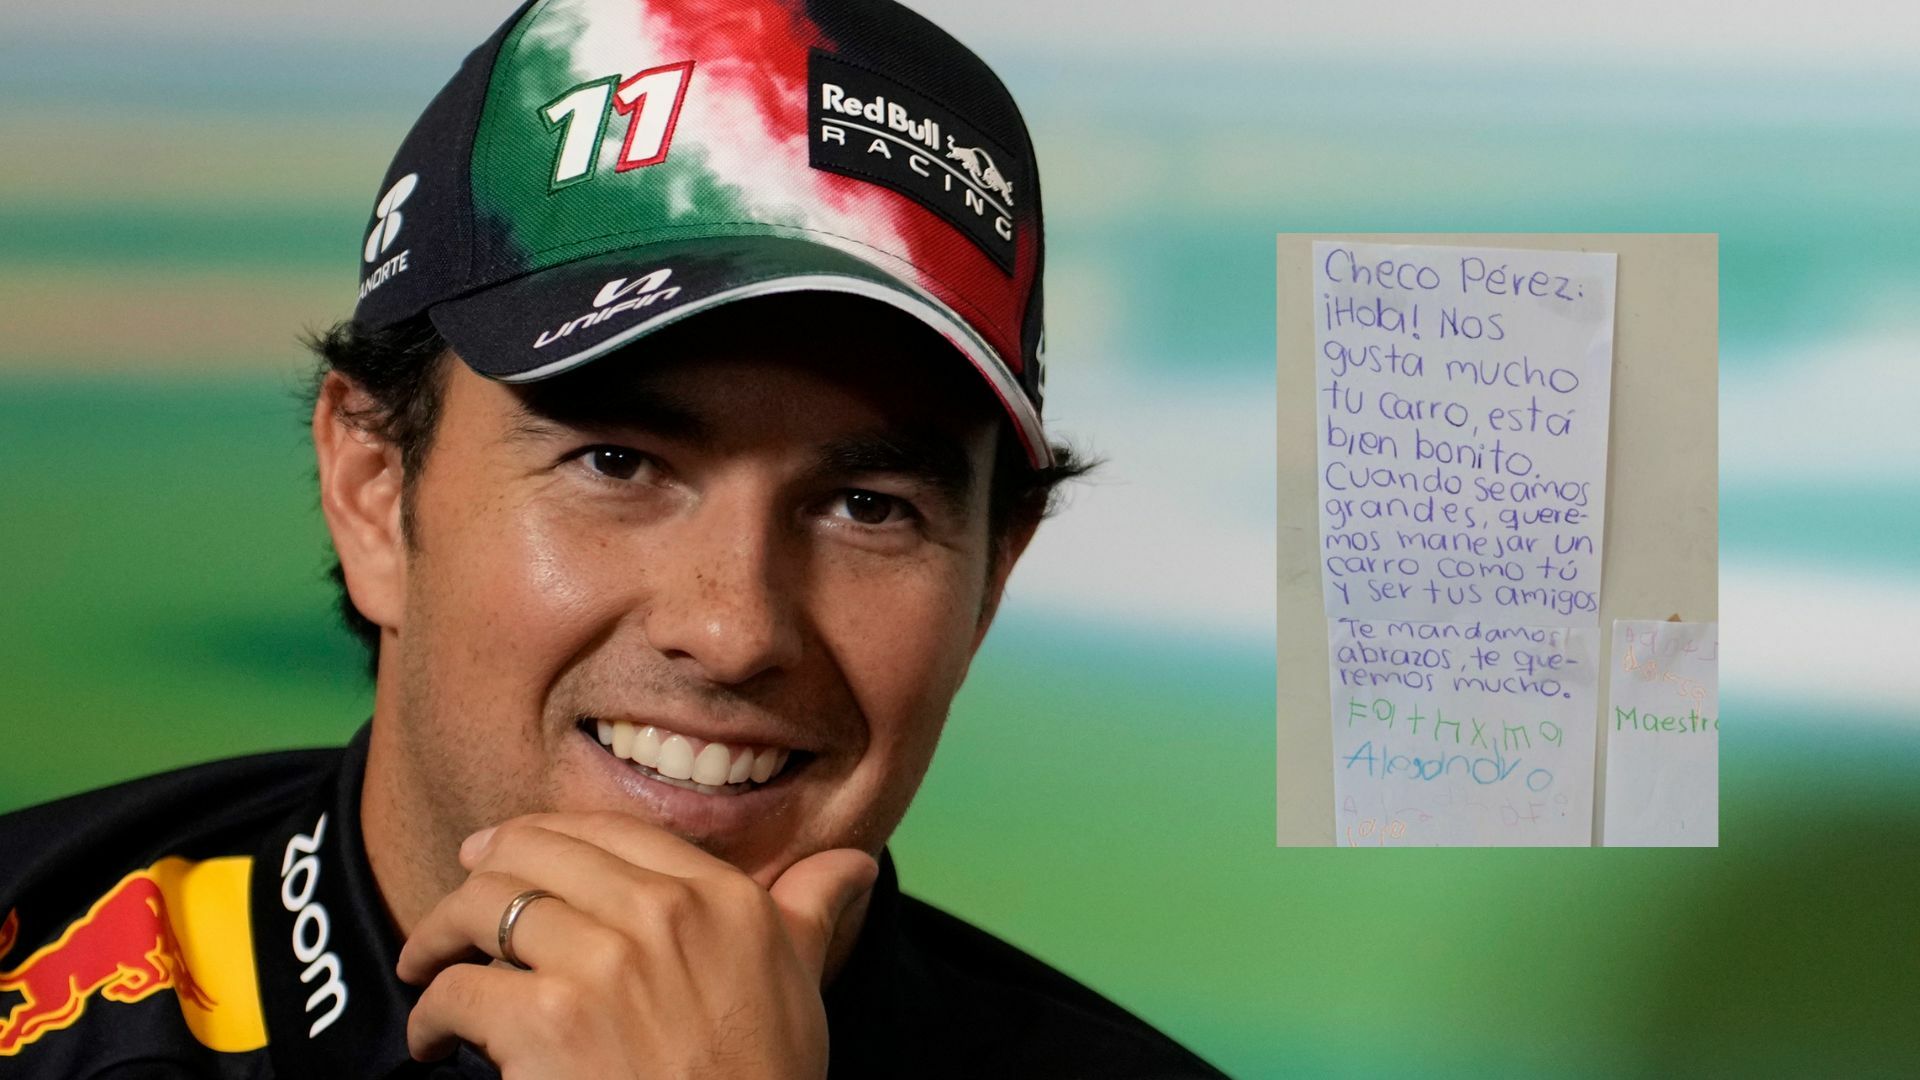 11
Red Bull
RACING
ANORTE
UNIFIN
zoom
Checo Pérez:
¡Hola! Nos
gusta mucho
tu carro, está
bien bonito.
Cuando seámos
grandes, quere-
mos manejar un
carro como tú
y ser tus amigos
Te mandamos
abrazos, te que-
remos mucho.
Fathxma
Alejandro
Maestr